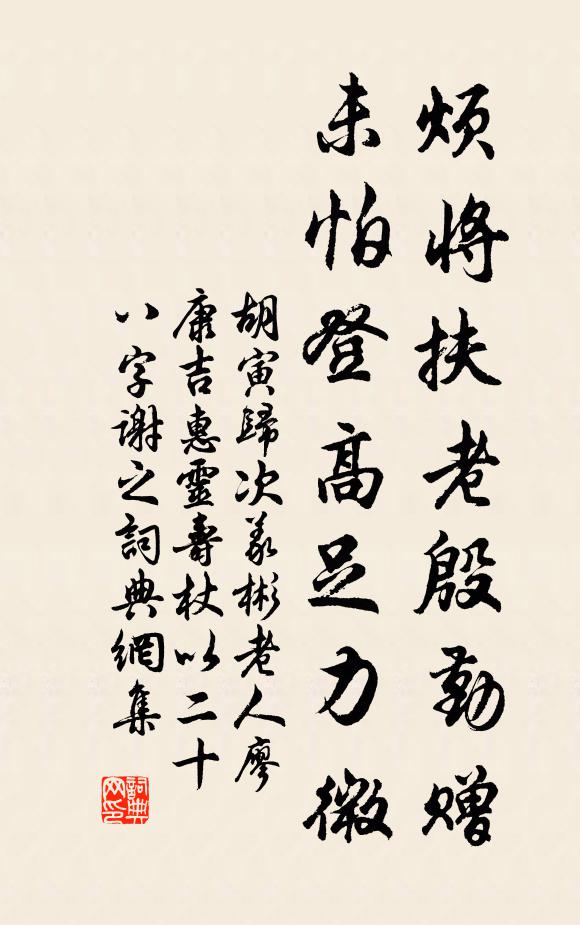 烦将扶老殷勤赠
未怕登高足力微
胡寅歸次義彬老人廖
康吉惠靈壽杖以二十
八字谢之詞典網集
詞典
网印